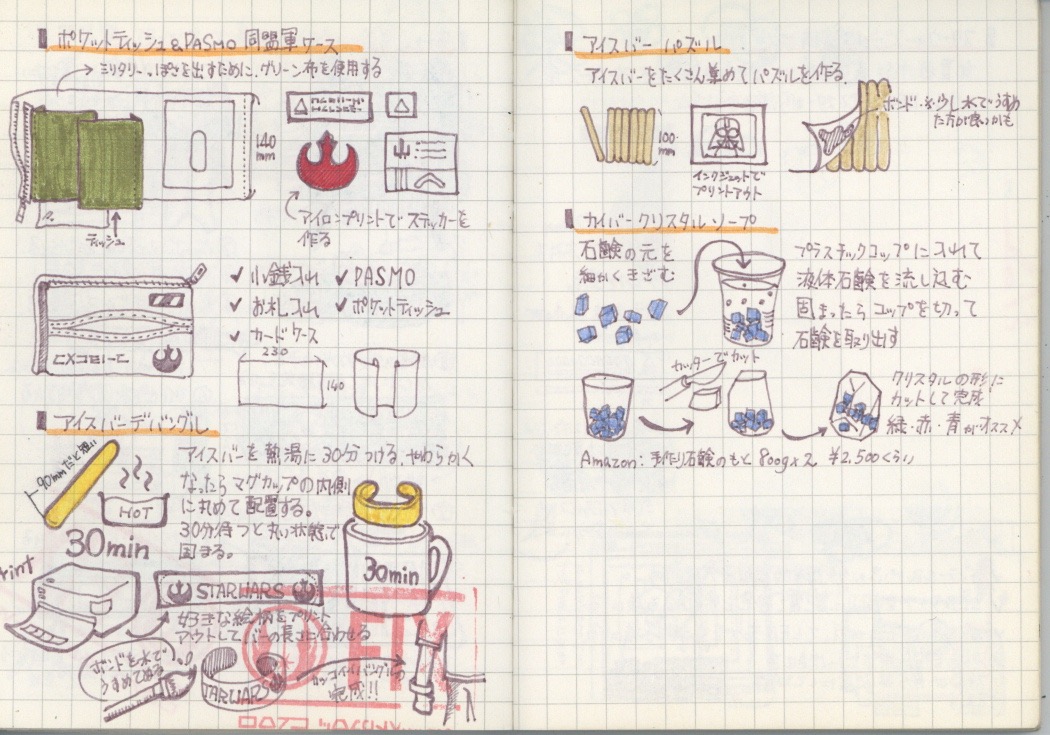 ポケットティッシュ&PASMO 同盟軍ケース
ミリタリーっぽさを出すために、グリーン布を使用する
140
mm
ティッシュ
アイロンプリントで ステッカーを
作る
✓ 小銭入れ ✓ PASMO
✓ お札入れ ✓ ポケットティッシュ
✓ カードケース
230
140
アイスバーデバングル
90mmだと短い
HOT
30min
アイスバーを熱湯に30分つける、やわらかく
なったらマグカップの内側
に丸めて配置する。
30分待つと丸い状態で
固まる。
30min
Print
STARWARS
好きな絵柄をプリント
アウトして、バーの長さに合わせる
ボンドを水で
うすめてぬる
TARWARS
カッコイイバングルの
完成!!
FIX
アイスバー パズル
アイスバーをたくさん集めて パズルを作る。
100
mm
インクジェットで
プリントアウト
ボンド・少し水でうすめ
た方が良いかも
カイバークリスタルソープ
石鹸の元を
細かくきざむ
プラスチックコップに入れて
液体石鹸を流し込む
固まったらコップを切って
石鹸を取り出す
カッターでカット
クリスタルの形に
カットして完成
緑・赤・青がオススメ
Amazon: 手作り石鹸のもと 800g×2 ¥2,500くらい